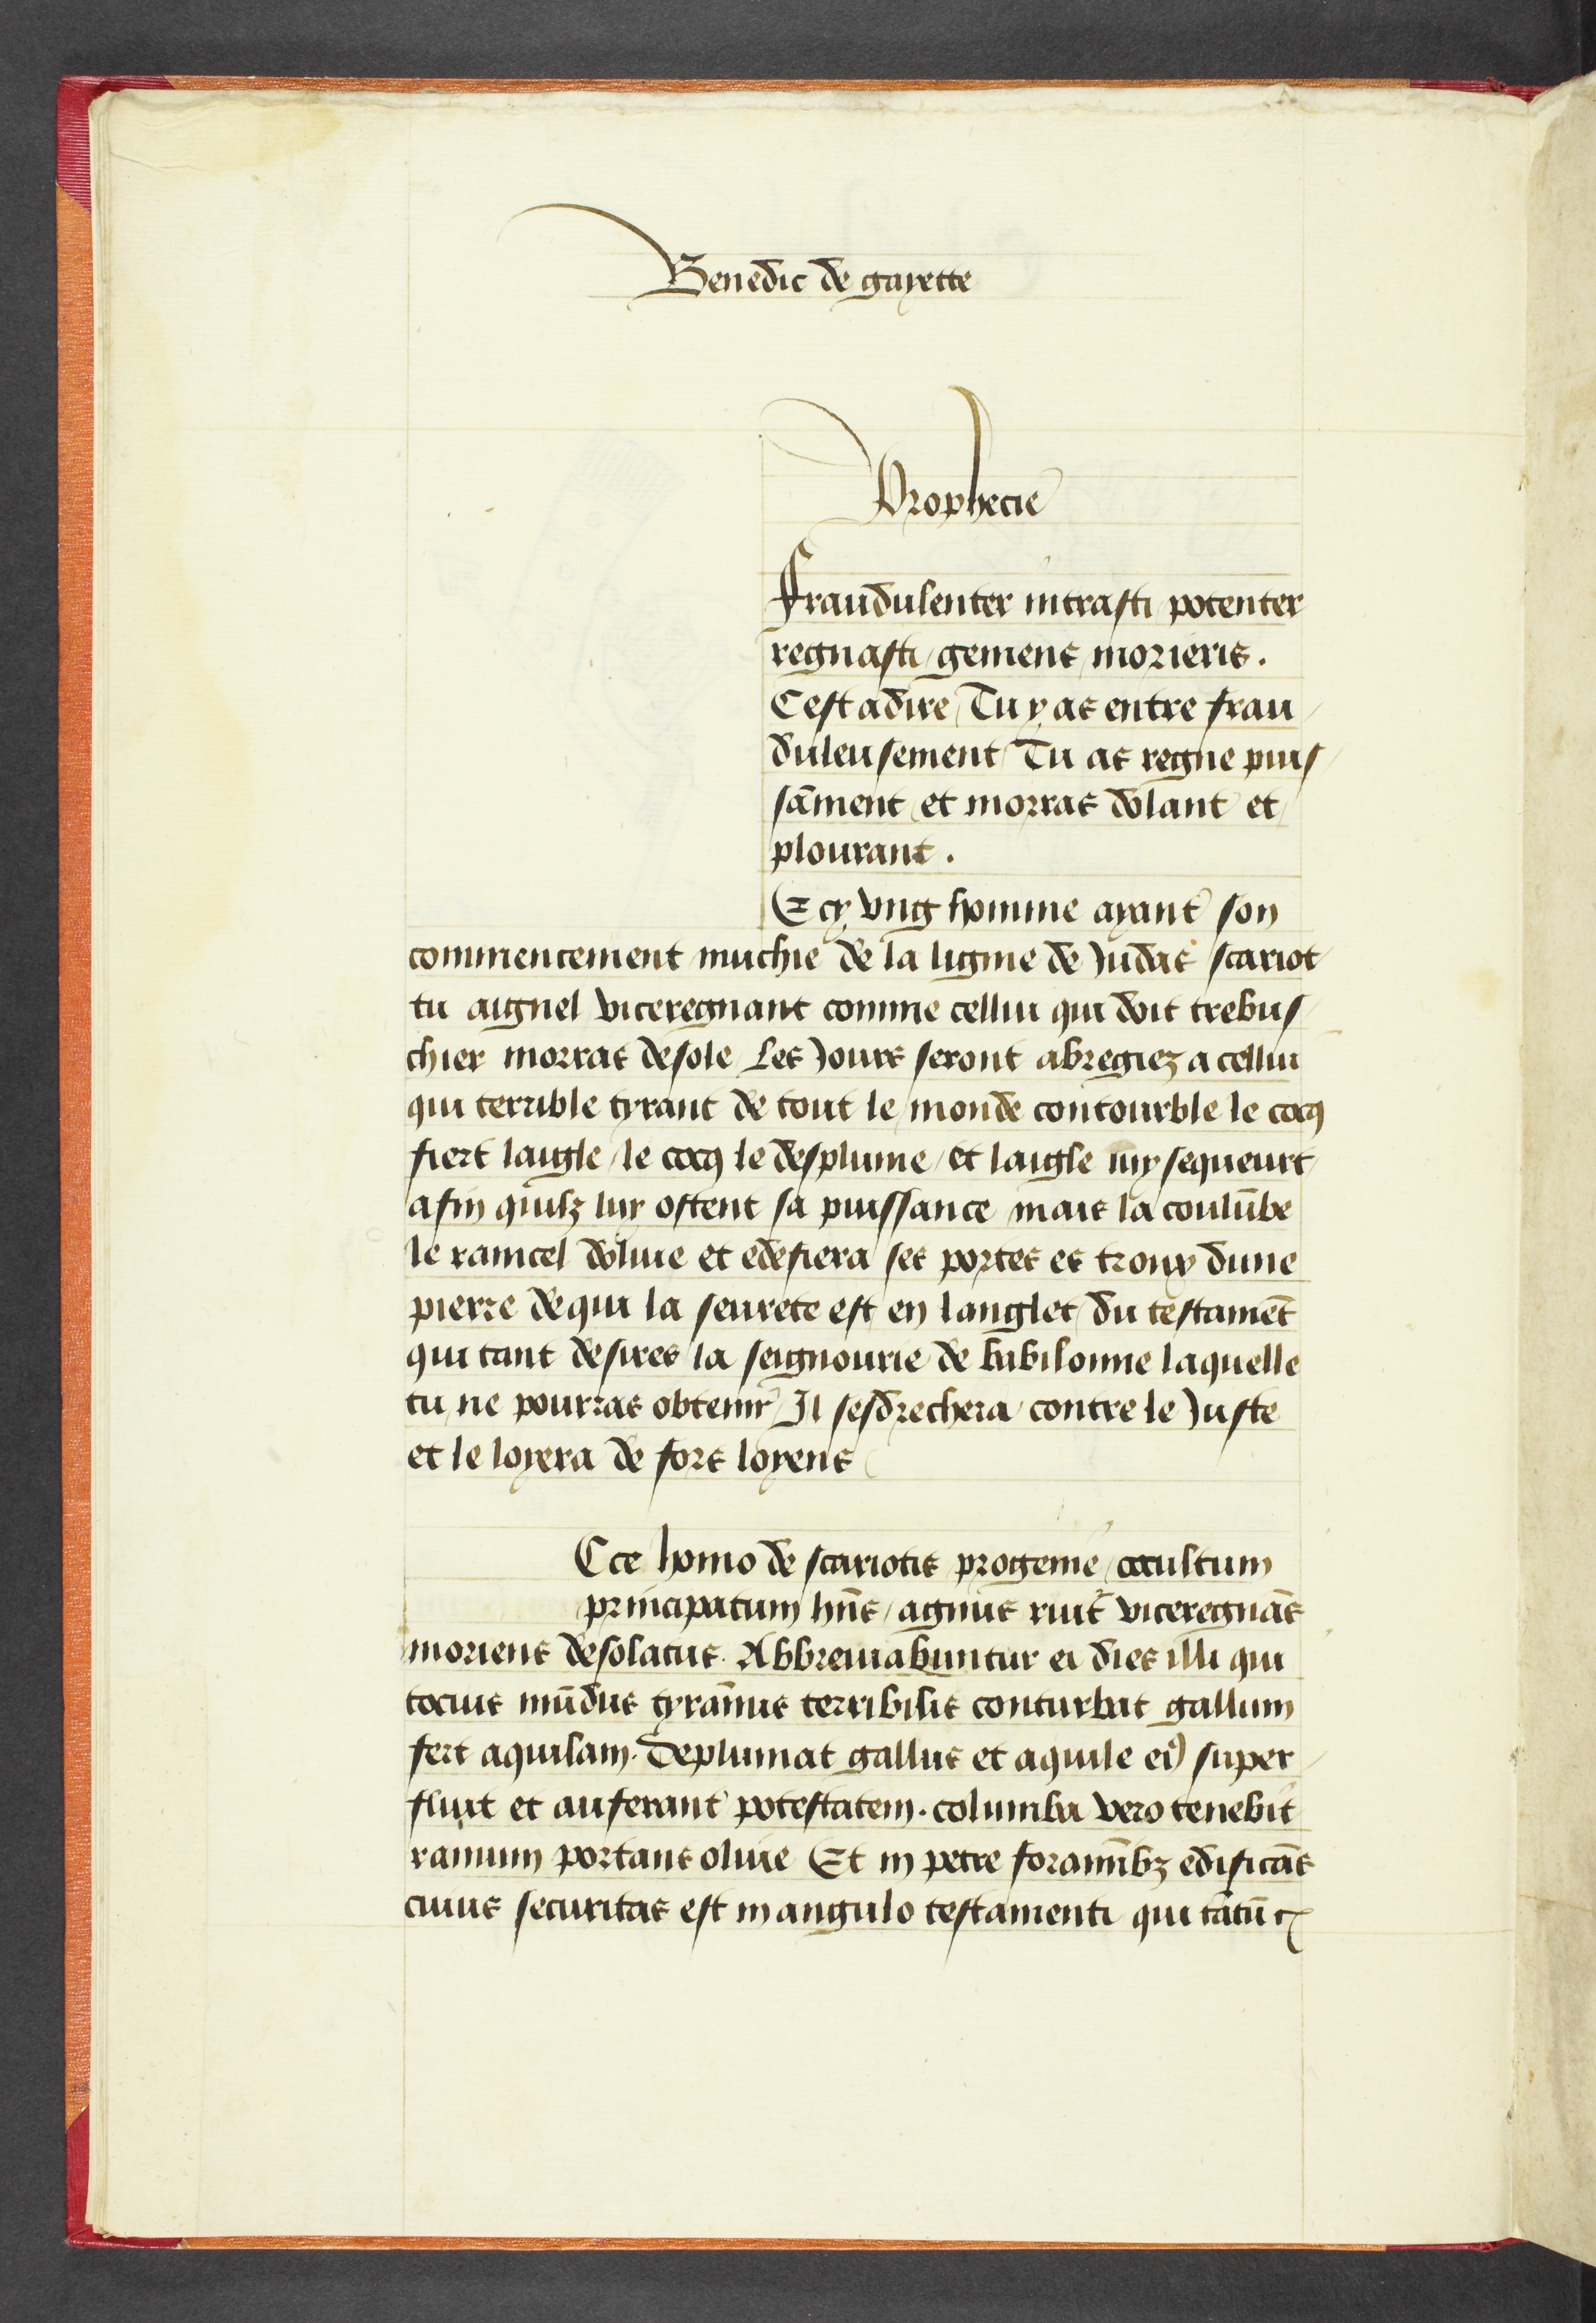 Benedic de gayette
Prophecie
Fraudulenter intrasti potenter
regnasti / gemens morieris .
C est adire / Tu y as entre frau /
duleusement Tu as regne puis /
sāment / et morras dolant et
plourant .
E cy vng homme ayant son
commencement muchie de la ligine de Judas scariot
tu aignel viceregnant comme cellui qui doit trebus /
chier morras desole / Les Jours seront abregiez a cellui
qui terrible tyrant de tout le monde contourble le cocq
fiert laigle / le cocq le desplume / et laigle luy sequeurt
afin quilz luy ostent sa puissance mais la coulūbe
le raincel doliue et edefiera ses portes es troux dune
pierre de qui la seurete est en langlet du testamēt
qui tant desires la seignourie de babilonne laquelle
tu ne pourras obtenir / Il sesdrechera contre le Juste
et le loyera de fors loyens
C ce homo de scariotis progenie / occultum
principatum hn̄s / agnus ruit viceregnās
moriens desolatus . Abbreuiabuntur ei dies illi qui
tocius mūdus tyrānus terribilis conturbat gallum
fert aquilam . Deplumat gallus et aquile ei9 super /
fluit et auferant potestatem . columba vero tenebit
ramum portans oliue Et in petre foraminībz edificās
cuius securitas est in angulo testamenti qui tātū &